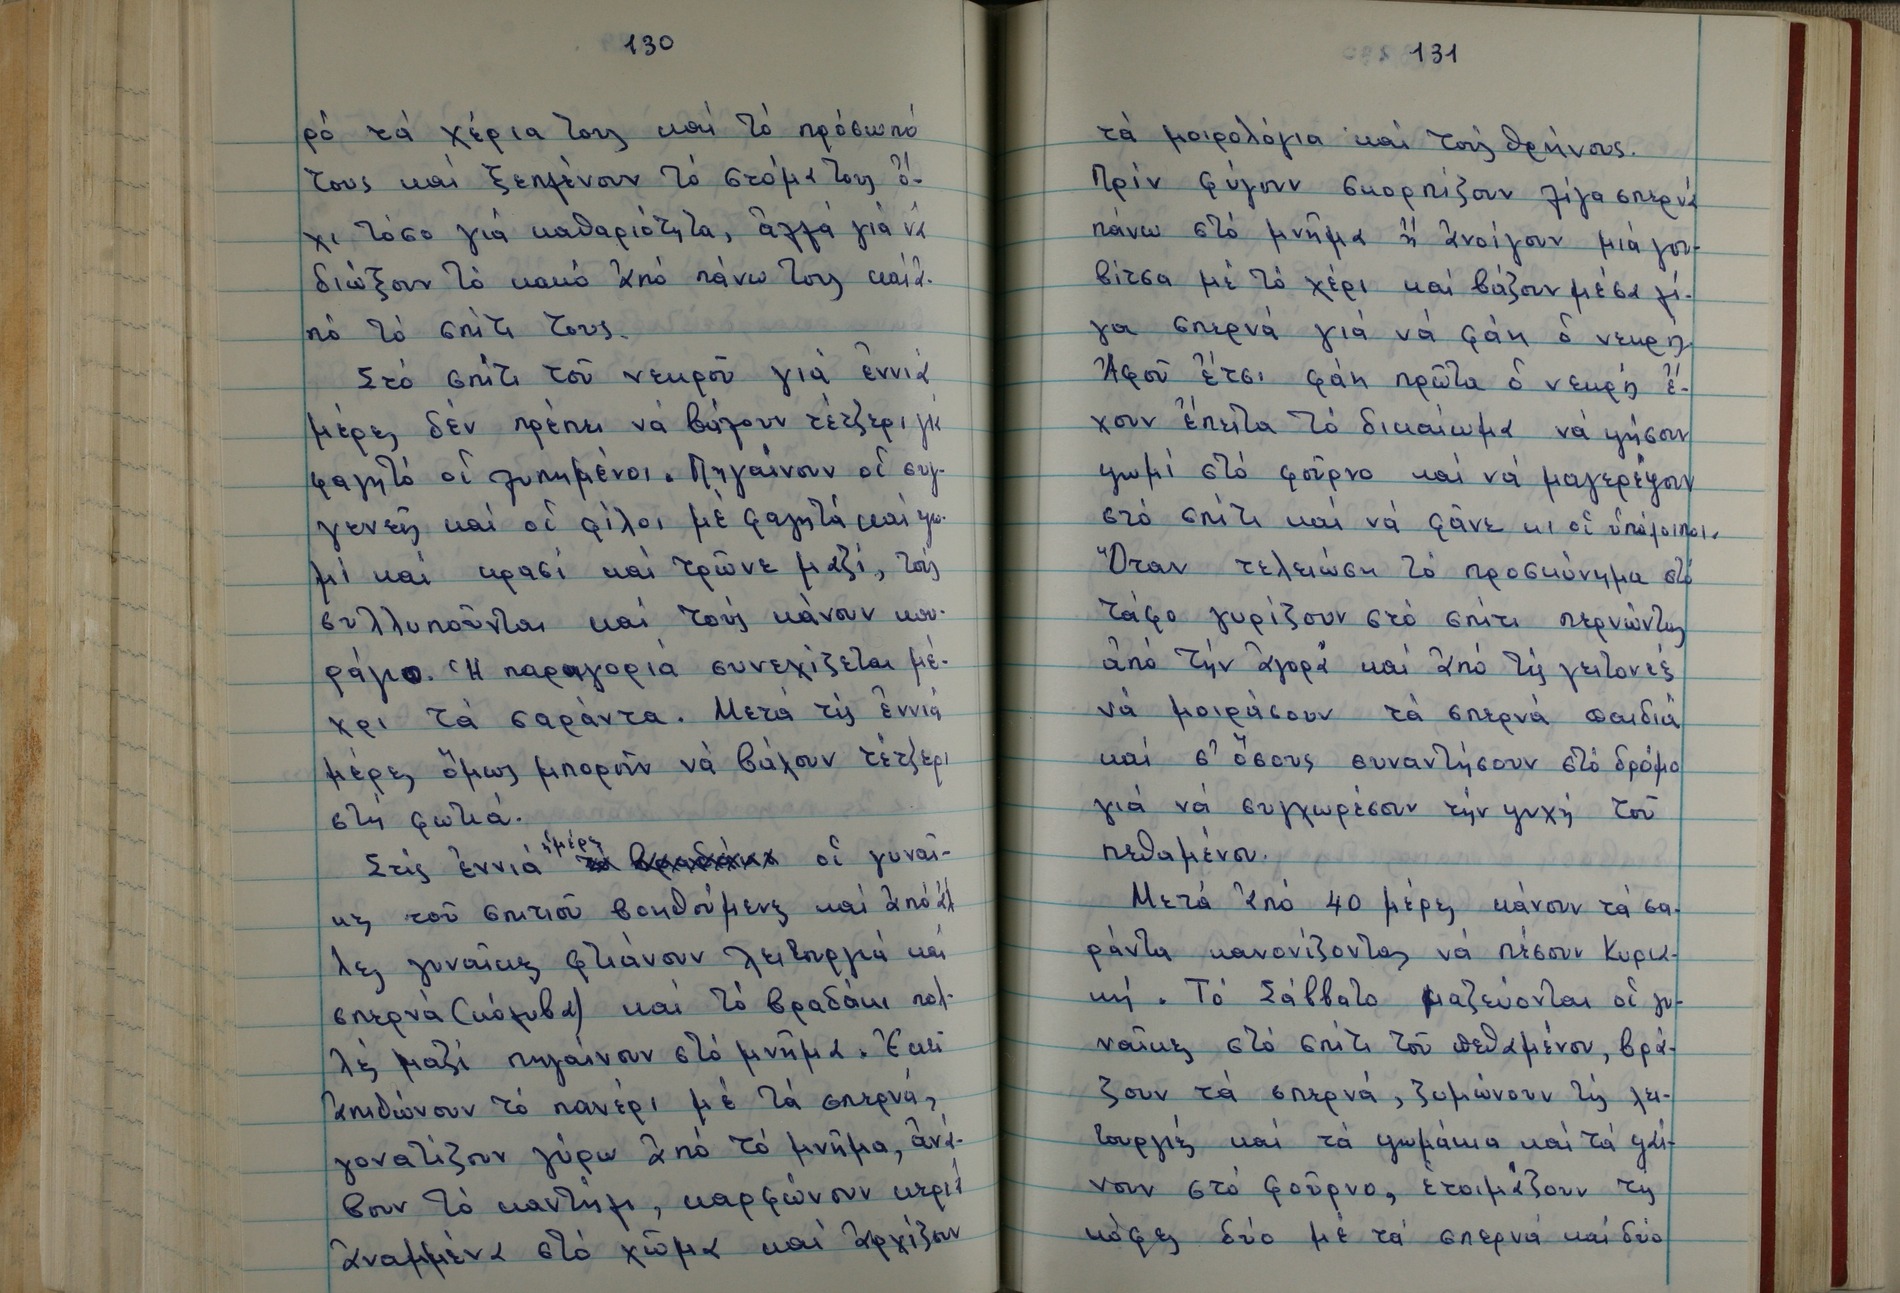 130
ρό τά χέρια τους καί τό πρόσωπό
τους καί ξεπλένουν τό στόμα τους ὄ-
χι τόσο γιά καθαριότητα, ἀλλά γιά νά
διώξουν τό κακό ἀπό πάνω τους καί ἀ-
πό τό σπίτι τους.
Στό σπίτι τοῦ νεκροῦ γιά ἐννιά
μέρες δέν πρέπει νά βάλουν τέτζερι γιά
φαγητό οἱ λυπημένοι. Πηγαίνουν οἱ συγ-
γενεῖς καί οἱ φίλοι μέ φαγητά καί ψω-
μί καί κρασί καί τρῶνε μαζί, τούς
συλλυποῦνται καί τούς κάνουν κου-
ράγιο. Ἡ παρηγοριά συνεχίζεται μέ-
χρι τά σαράντα. Μετά τίς ἐννιά
μέρες ὅμως μποροῦν νά βάλουν τέτζερι
στή φωτιά.
Στίς ἐννιά ἡμέρες τό βραδάκι οἱ γυναῖ-
κες τοῦ σπιτιοῦ βοηθούμενες καί ἀπό ἄλ
λες γυναῖκες φτιάνουν λειτουργιά καί
σπερνά (κόλυβα) καί τό βραδάκι πολ-
λές μαζί πηγαίνουν στό μνῆμα. Ἐκεῖ
ἀπιθώνουν τό πανέρι μέ τά σπερνά,
γονατίζουν γύρω ἀπό τό μνῆμα, ἀνά-
βουν τό καντήλι, καρφώνουν κεριά
ἀναμμένα στό χῶμα καί ἀρχίζουν
131
τά μοιρολόγια καί τούς θρήνους.
Πρίν φύγουν σκορπίζουν λίγα σπερνά
πάνω στό μνῆμα ἤ ἀνοίγουν μιά γου-
βίτσα μέ τό χέρι καί βάζουν μέσα λί-
γα σπερνά γιά νά φάη ὁ νεκρός.
Ἀφοῦ ἔτσι φάη πρῶτα ὁ νεκρός ἔ-
χουν ἔπειτα τό δικαίωμα νά ψήσουν
ψωμί στό φοῦρνο καί νά μαγερέψουν
στό σπίτι καί νά φᾶνε κι οἱ ὑπόλοιποι.
Ὅταν τελειώση τό προσκύνημα στό
τάφο γυρίζουν στό σπίτι περνώντας
ἀπό τήν ἀγορά καί ἀπό τίς γειτονιές
νά μοιράσουν τά σπερνά παιδιά
καί σ' ὅσους συναντήσουν στό δρόμο
γιά νά συγχωρέσουν τήν ψυχή τοῦ
πεθαμένου.
Μετά ἀπό 40 μέρες κάνουν τά σα-
ράντα κανονίζοντας νά πέσουν Κυρια-
κή. Τό Σάββατο μαζεύονται οἱ γυ-
ναῖκες στό σπίτι τοῦ πεθαμένου, βρά-
ζουν τά σπερνά, ζυμώνουν τίς λει-
τουργιές καί τά ψωμάκια καί τά ψαί-
νουν στό φοῦρνο, ἑτοιμάζουν τίς
κόφες δύο μέ τά σπερνά καί δύο